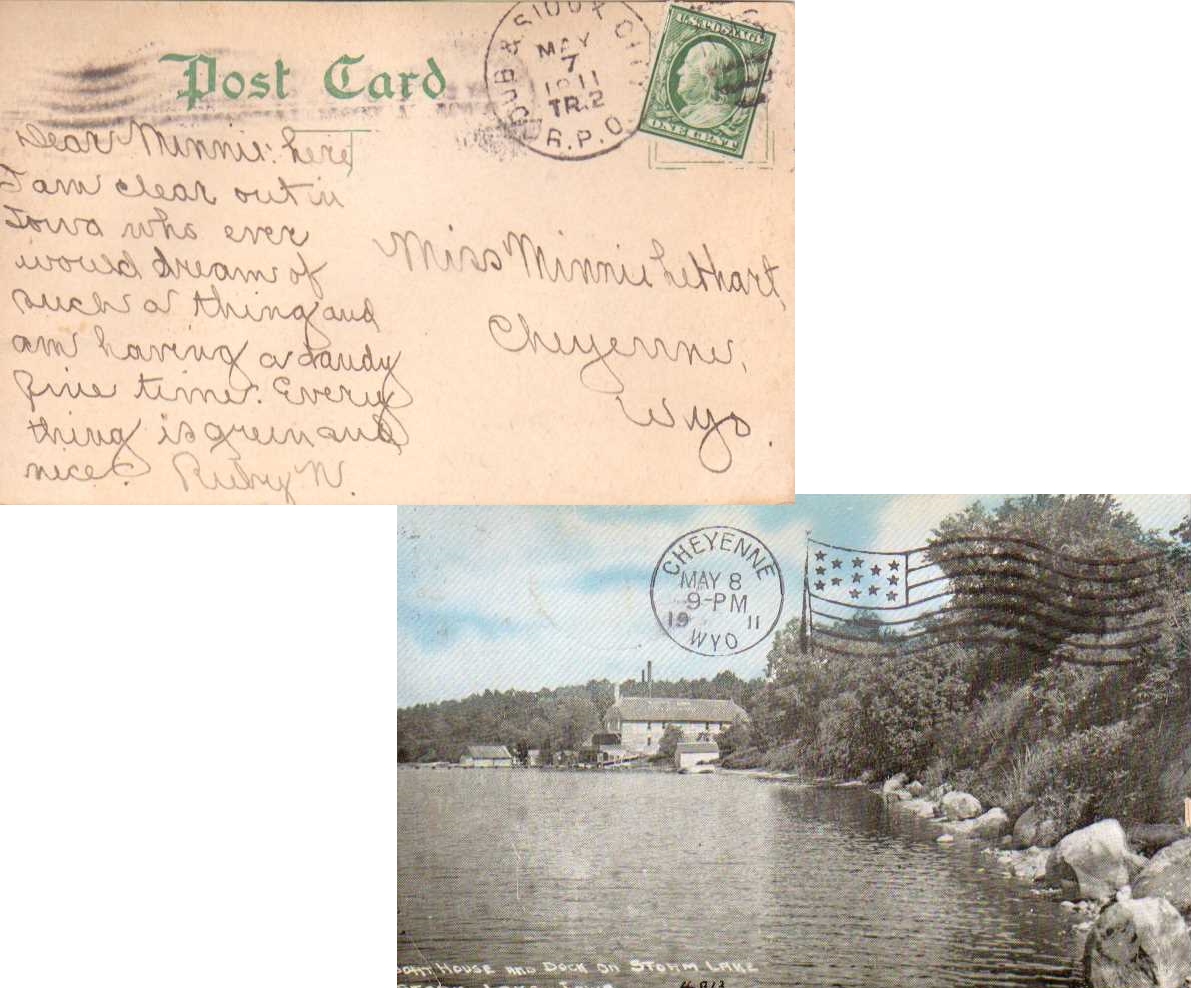 Post Card
DUB & SIOUX CITY
MAY
7
1911
TR.2
R.P.O.
U.S. POSTAGE
ONE CENT
Dear Minnie: here
I am clear out in
Iowa who ever
would dream of
such a thing and
am having a dandy
fine time. Every
thing is green and
nice. Ruby N.
Miss Minnie Lethart,
Cheyenne,
Wyo.
CHEYENNE
MAY 8
9-PM
19 11
WYO
BOAT HOUSE AND DOCK ON STORM LAKE
STORM LAKE, IOWA